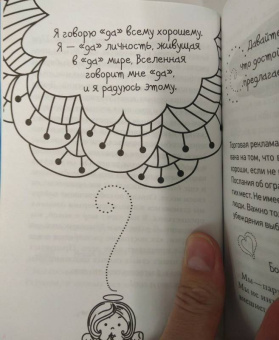 Я говорю «да» всему хорошему.
Я — «да» личность, живущая
в «да» мире, Вселенная
говорит мне «да»,
и я радуюсь этому.
Давайте
что достой
предлагае
Торговая реклама
вана на том, что в
хороши, если не
Послания об огра
тих мест. Не име
люди. Важно то
убеждения выб
Бо